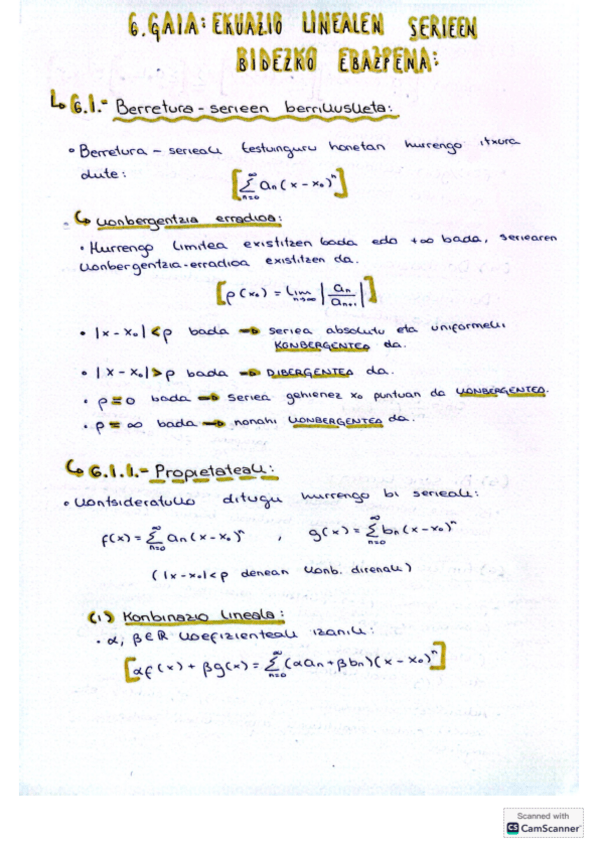 6. GAIA: EKUAZIO LINEALEN SERIEEN
BIDEZKO EBAZPENA:
↳ 6.1.- Berretura-serieen berrikusketa:
• Berretura-serieak testuinguru honetan hurrengo itxura
dute:
[∑_{n=0}^{∞} a_n (x - x_0)^n]
↳ Konbergentzia erradioa:
• Hurrengo limitea existitzen bada edo +∞ bada, seriearen
konbergentzia-erradioa existitzen da.
[ρ(x_0) = lim_{n→∞} |a_n / a_{n+1}|]
• |x - x_0| < ρ bada ⇒ seriea absolutu eta uniformeki
KONBERGENTEA da.
• |x - x_0| > ρ bada ⇒ DIBERGENTEA da.
• ρ = 0 bada ⇒ seriea gehienez x_0 puntuan da KONBERGENTEA.
• ρ = ∞ bada ⇒ nonahi KONBERGENTEA da.
↳ 6.1.1.- Propietateak:
• Kontsideratuko ditugu hurrengo bi serieak:
f(x) = ∑_{n=0}^{∞} a_n (x - x_0)^n , g(x) = ∑_{n=0}^{∞} b_n (x - x_0)^n
(|x - x_0| < ρ denean konb. direnak)
(i) Konbinazio lineala:
• α, β ∈ ℝ koefizienteak izanik:
[αf(x) + βg(x) = ∑_{n=0}^{∞} (αa_n + βb_n)(x - x_0)^n]
Scanned with
CS CamScanner